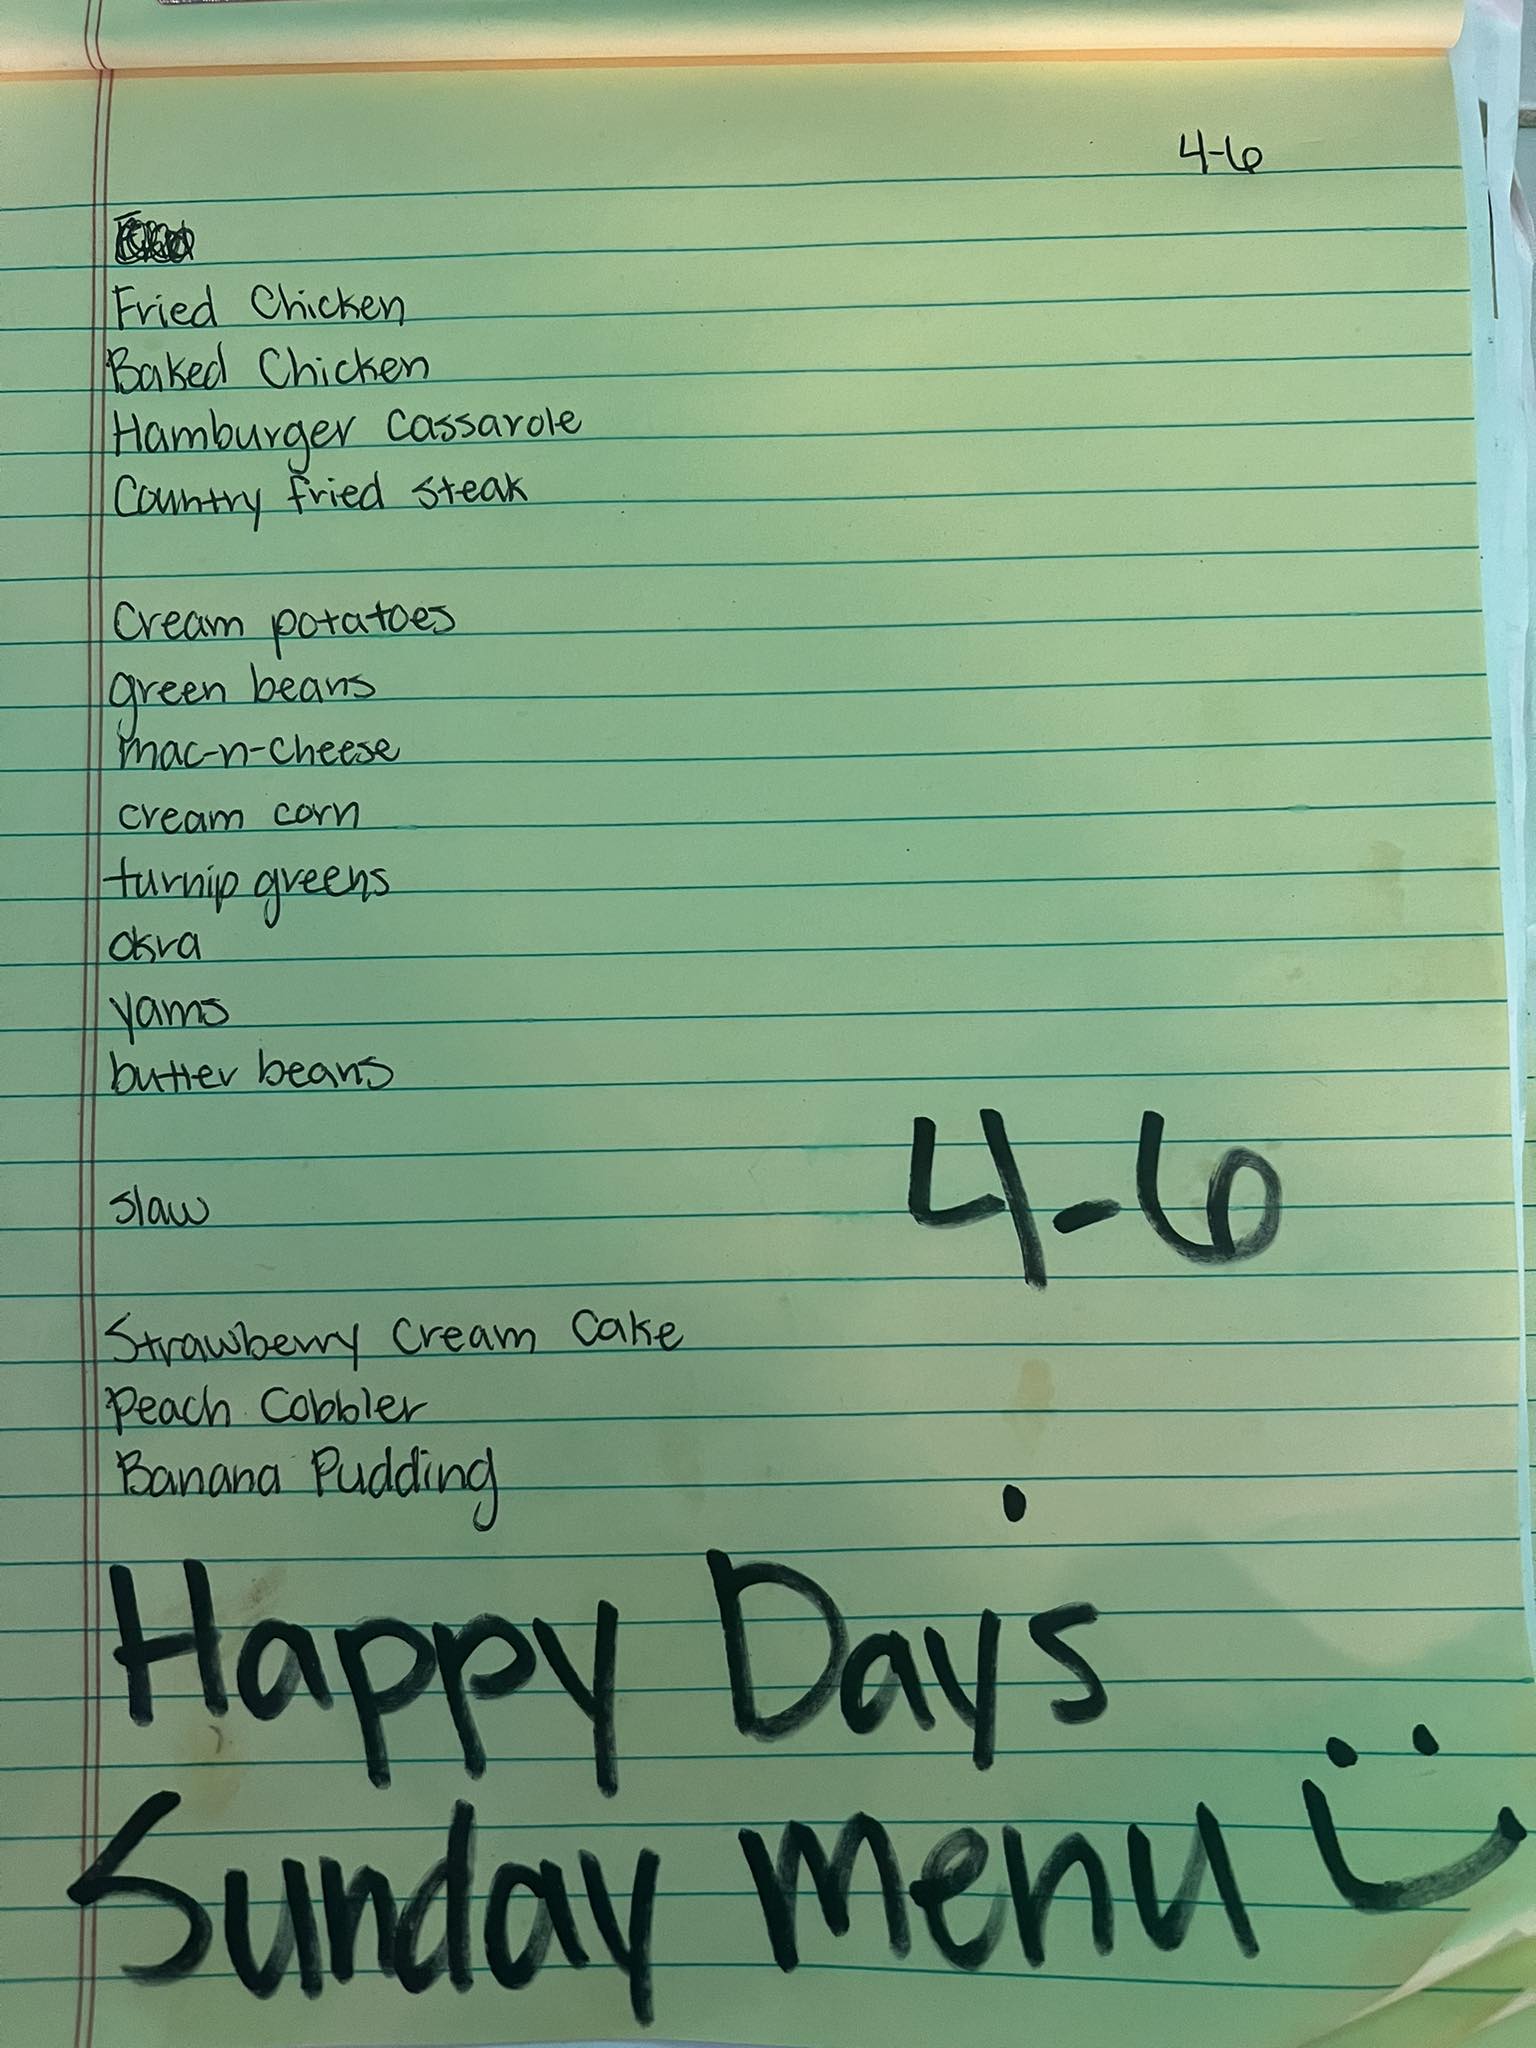 4-6
Fried Chicken
Baked Chicken
Hamburger Cassarole
Country fried steak
Cream potatoes
green beans
mac-n-cheese
cream corn
turnip greens
okra
yams
butter beans
4-6
slaw
Strawberry Cream Cake
Peach Cobbler
Banana Pudding
Happy Day's
Sunday menu